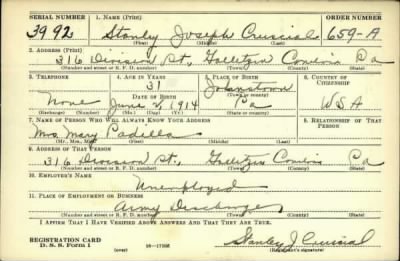 SERIAL NUMBER 1. NAME (Print) ORDER NUMBER
3992 Stanley Joseph Cruscial 659-A
(First) (Middle) (Last)
2. ADDRESS (Print)
316 Division St., Gallitzin Cambria Pa
(Number and street or R. F. D. number) (Town) (County) (State)
3. TELEPHONE 4. AGE IN YEARS 5. PLACE OF BIRTH 6. COUNTRY OF CITIZENSHIP
31 Johnstown
DATE OF BIRTH (Town or county)
None June 2, 1914 Pa USA
(Exchange) (Number) (Mo.) (Day) (Yr.) (State or country)
7. NAME OF PERSON WHO WILL ALWAYS KNOW YOUR ADDRESS 8. RELATIONSHIP OF THAT PERSON
Mrs. Mary Padella
(Mr., Mrs., Miss) (First) (Middle) (Last)
9. ADDRESS OF THAT PERSON
316 Division St., Gallitzin Cambria Pa
(Number and street or R. F. D. number) (Town) (County) (State)
10. EMPLOYER'S NAME
Unemployed
11. PLACE OF EMPLOYMENT OR BUSINESS
Army Discharge
(Number and street or R. F. D. number) (Town) (County) (State)
I AFFIRM THAT I HAVE VERIFIED ABOVE ANSWERS AND THAT THEY ARE TRUE.
REGISTRATION CARD
D. S. S. Form 1 (over) Stanley J. Cruscial
(Registrant's signature)